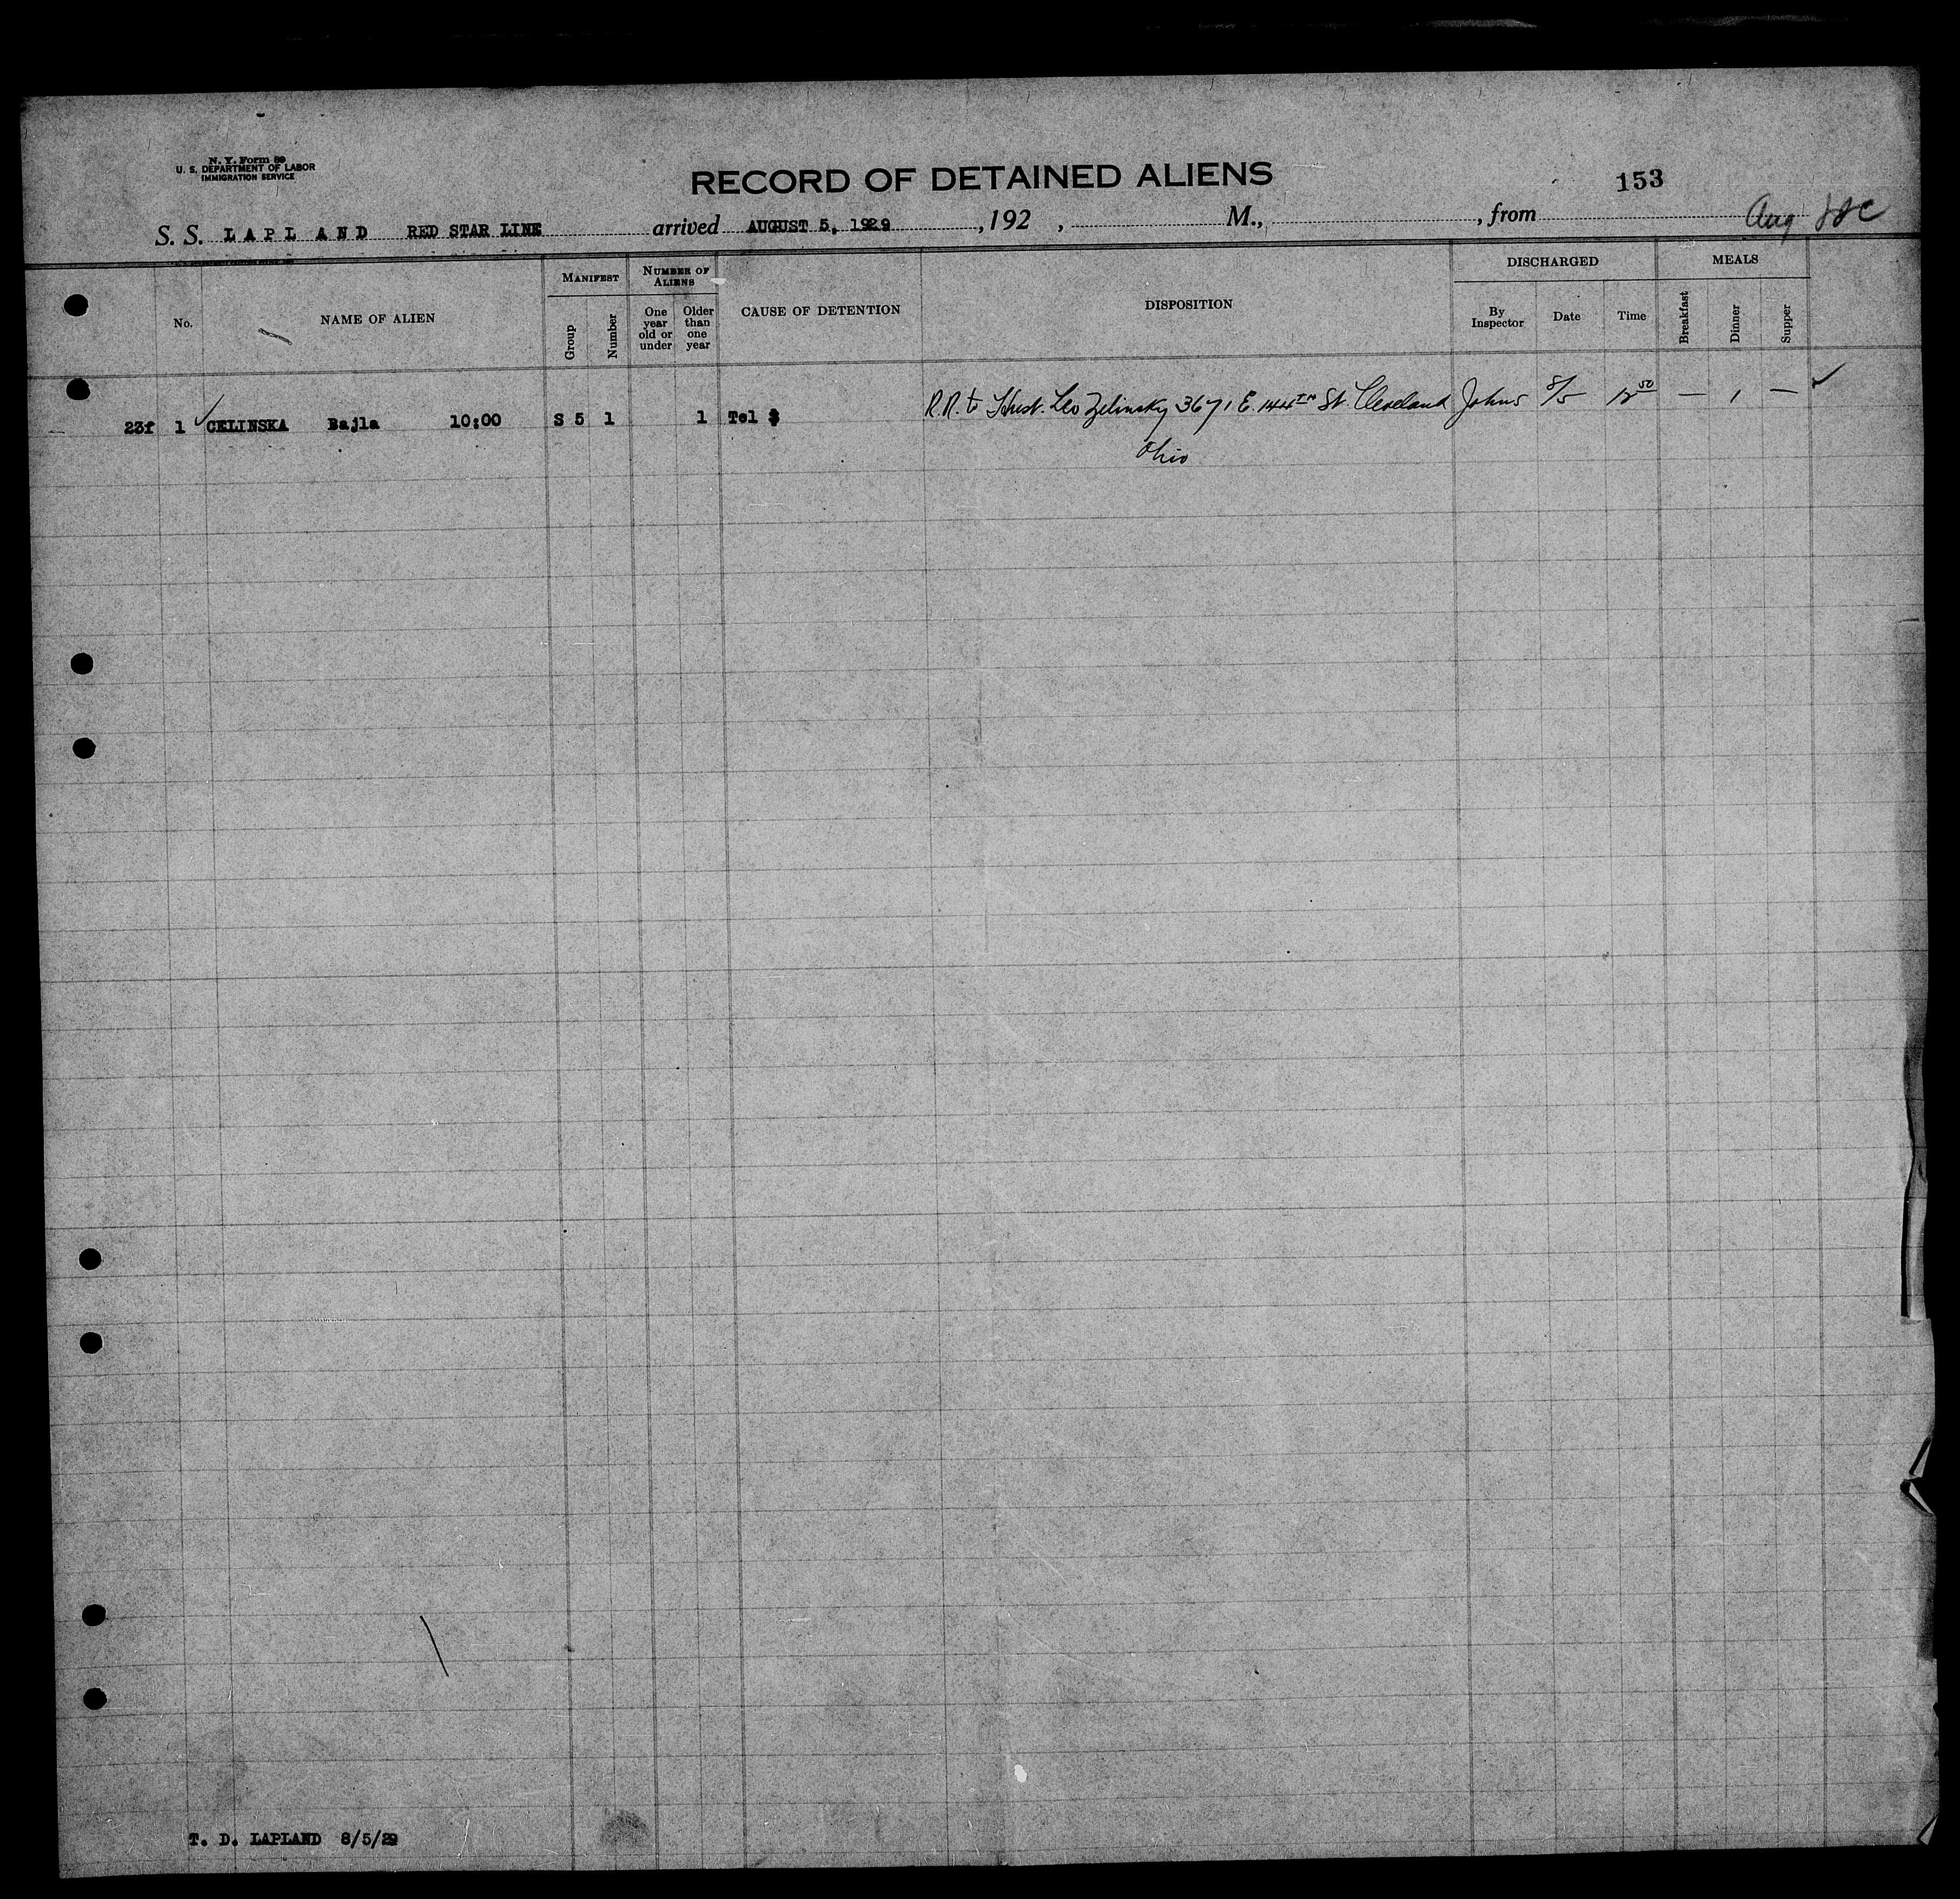 N. Y. Form 89
U. S. DEPARTMENT OF LABOR
IMMIGRATION SERVICE
RECORD OF DETAINED ALIENS
153
S. S. LAPLAND RED STAR LINE arrived AUGUST 5, 1929 , 192 , M., , from Aug
No.
NAME OF ALIEN
MANIFEST
Group
Number
NUMBER OF ALIENS
One year old or under
Older than one year
CAUSE OF DETENTION
DISPOSITION
DISCHARGED
By Inspector
Date
Time
MEALS
Breakfast
Dinner
Supper
23f 1 CELINSKA Bajla 10:00 S 5 1 1 Tel $ R.R. to Husb. Leo Zelinsky 3671 E. 144TH St. Cleveland Johns 8/5 12 50 — 1 —
Ohio
T. D. LAPLAND 8/5/29